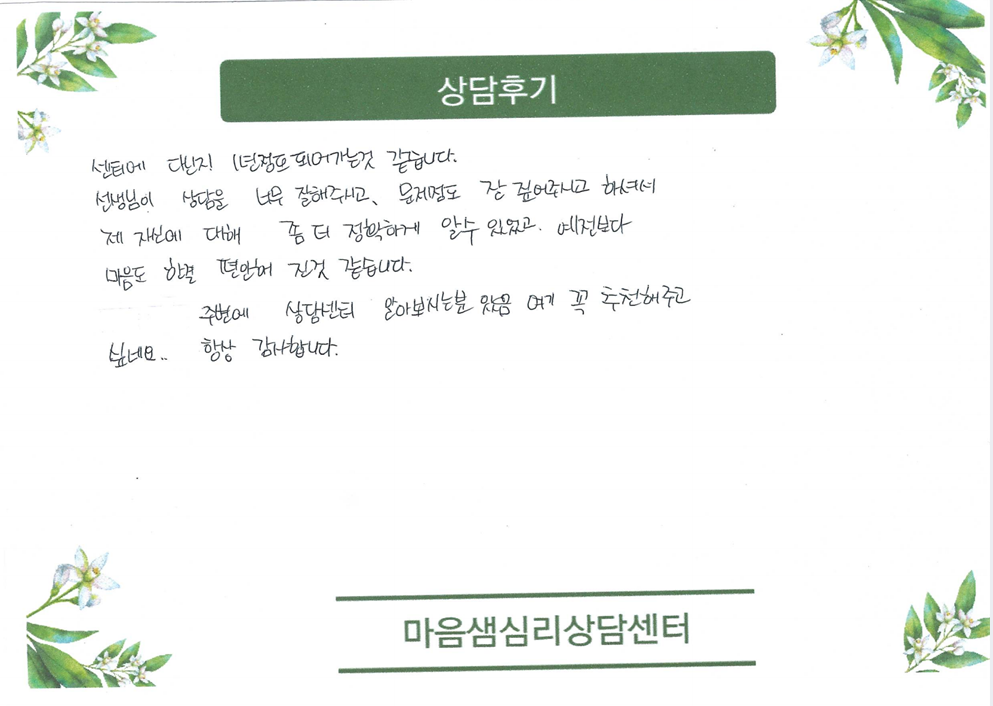 상담후기
센터에 다닌지 1년정도 되어가는것 같습니다.
선생님이 상담을 너무 잘해주시고, 문제점도 잘 짚어주시고 하셔서
제 자신에 대해 좀 더 정확하게 알수 있었고. 예전보다
마음도 한결 편안해 진것 같습니다.
주변에 상담센터 알아보시는분 있음 여기 꼭 추천해주고
싶네요.. 항상 감사합니다.
마음샘심리상담센터